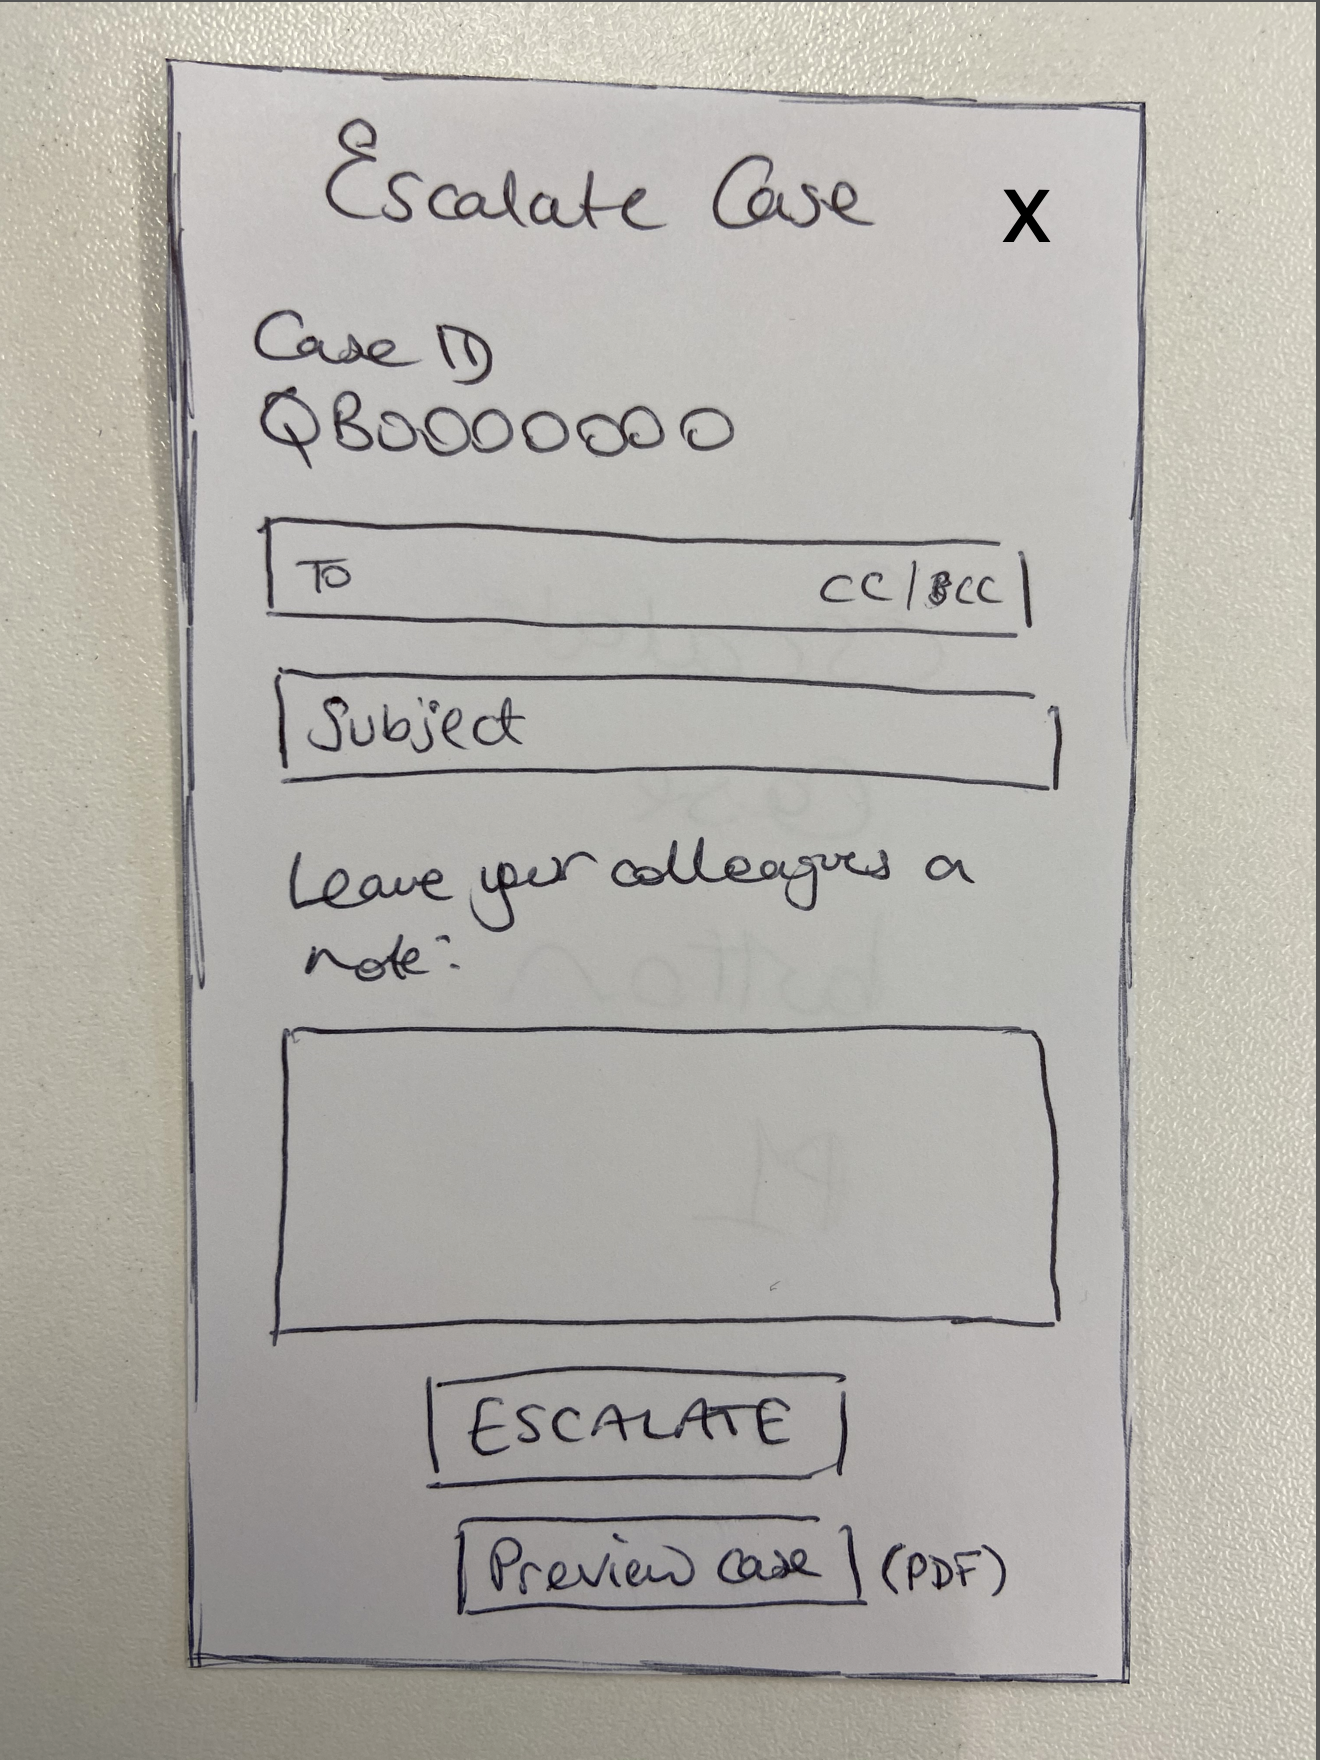 Escalate Case X
Case ID
QB0000000
To CC/BCC
Subject
Leave your colleagues a
note:
ESCALATE
Preview case (PDF)